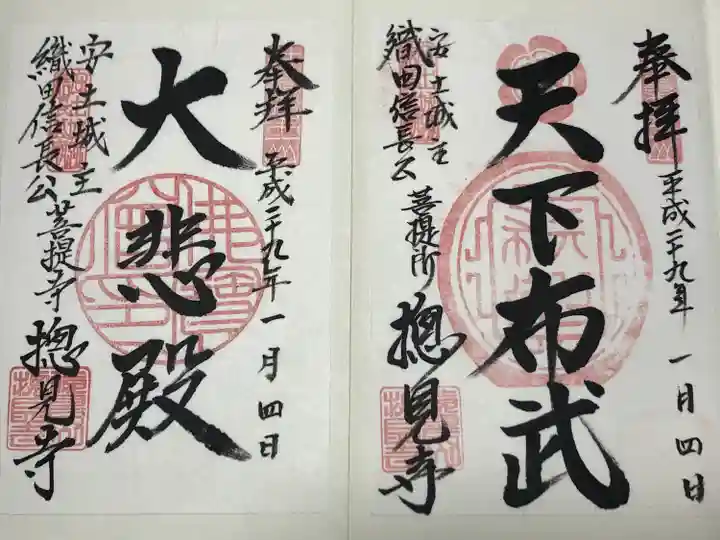 奉拝
平成二十九年 一月四日
天下布武
安土城主
織田信長公 菩提所 摠見寺
奉拝
平成二十九年一月四日
大悲殿
安土城主
織田信長公 菩提寺 摠見寺